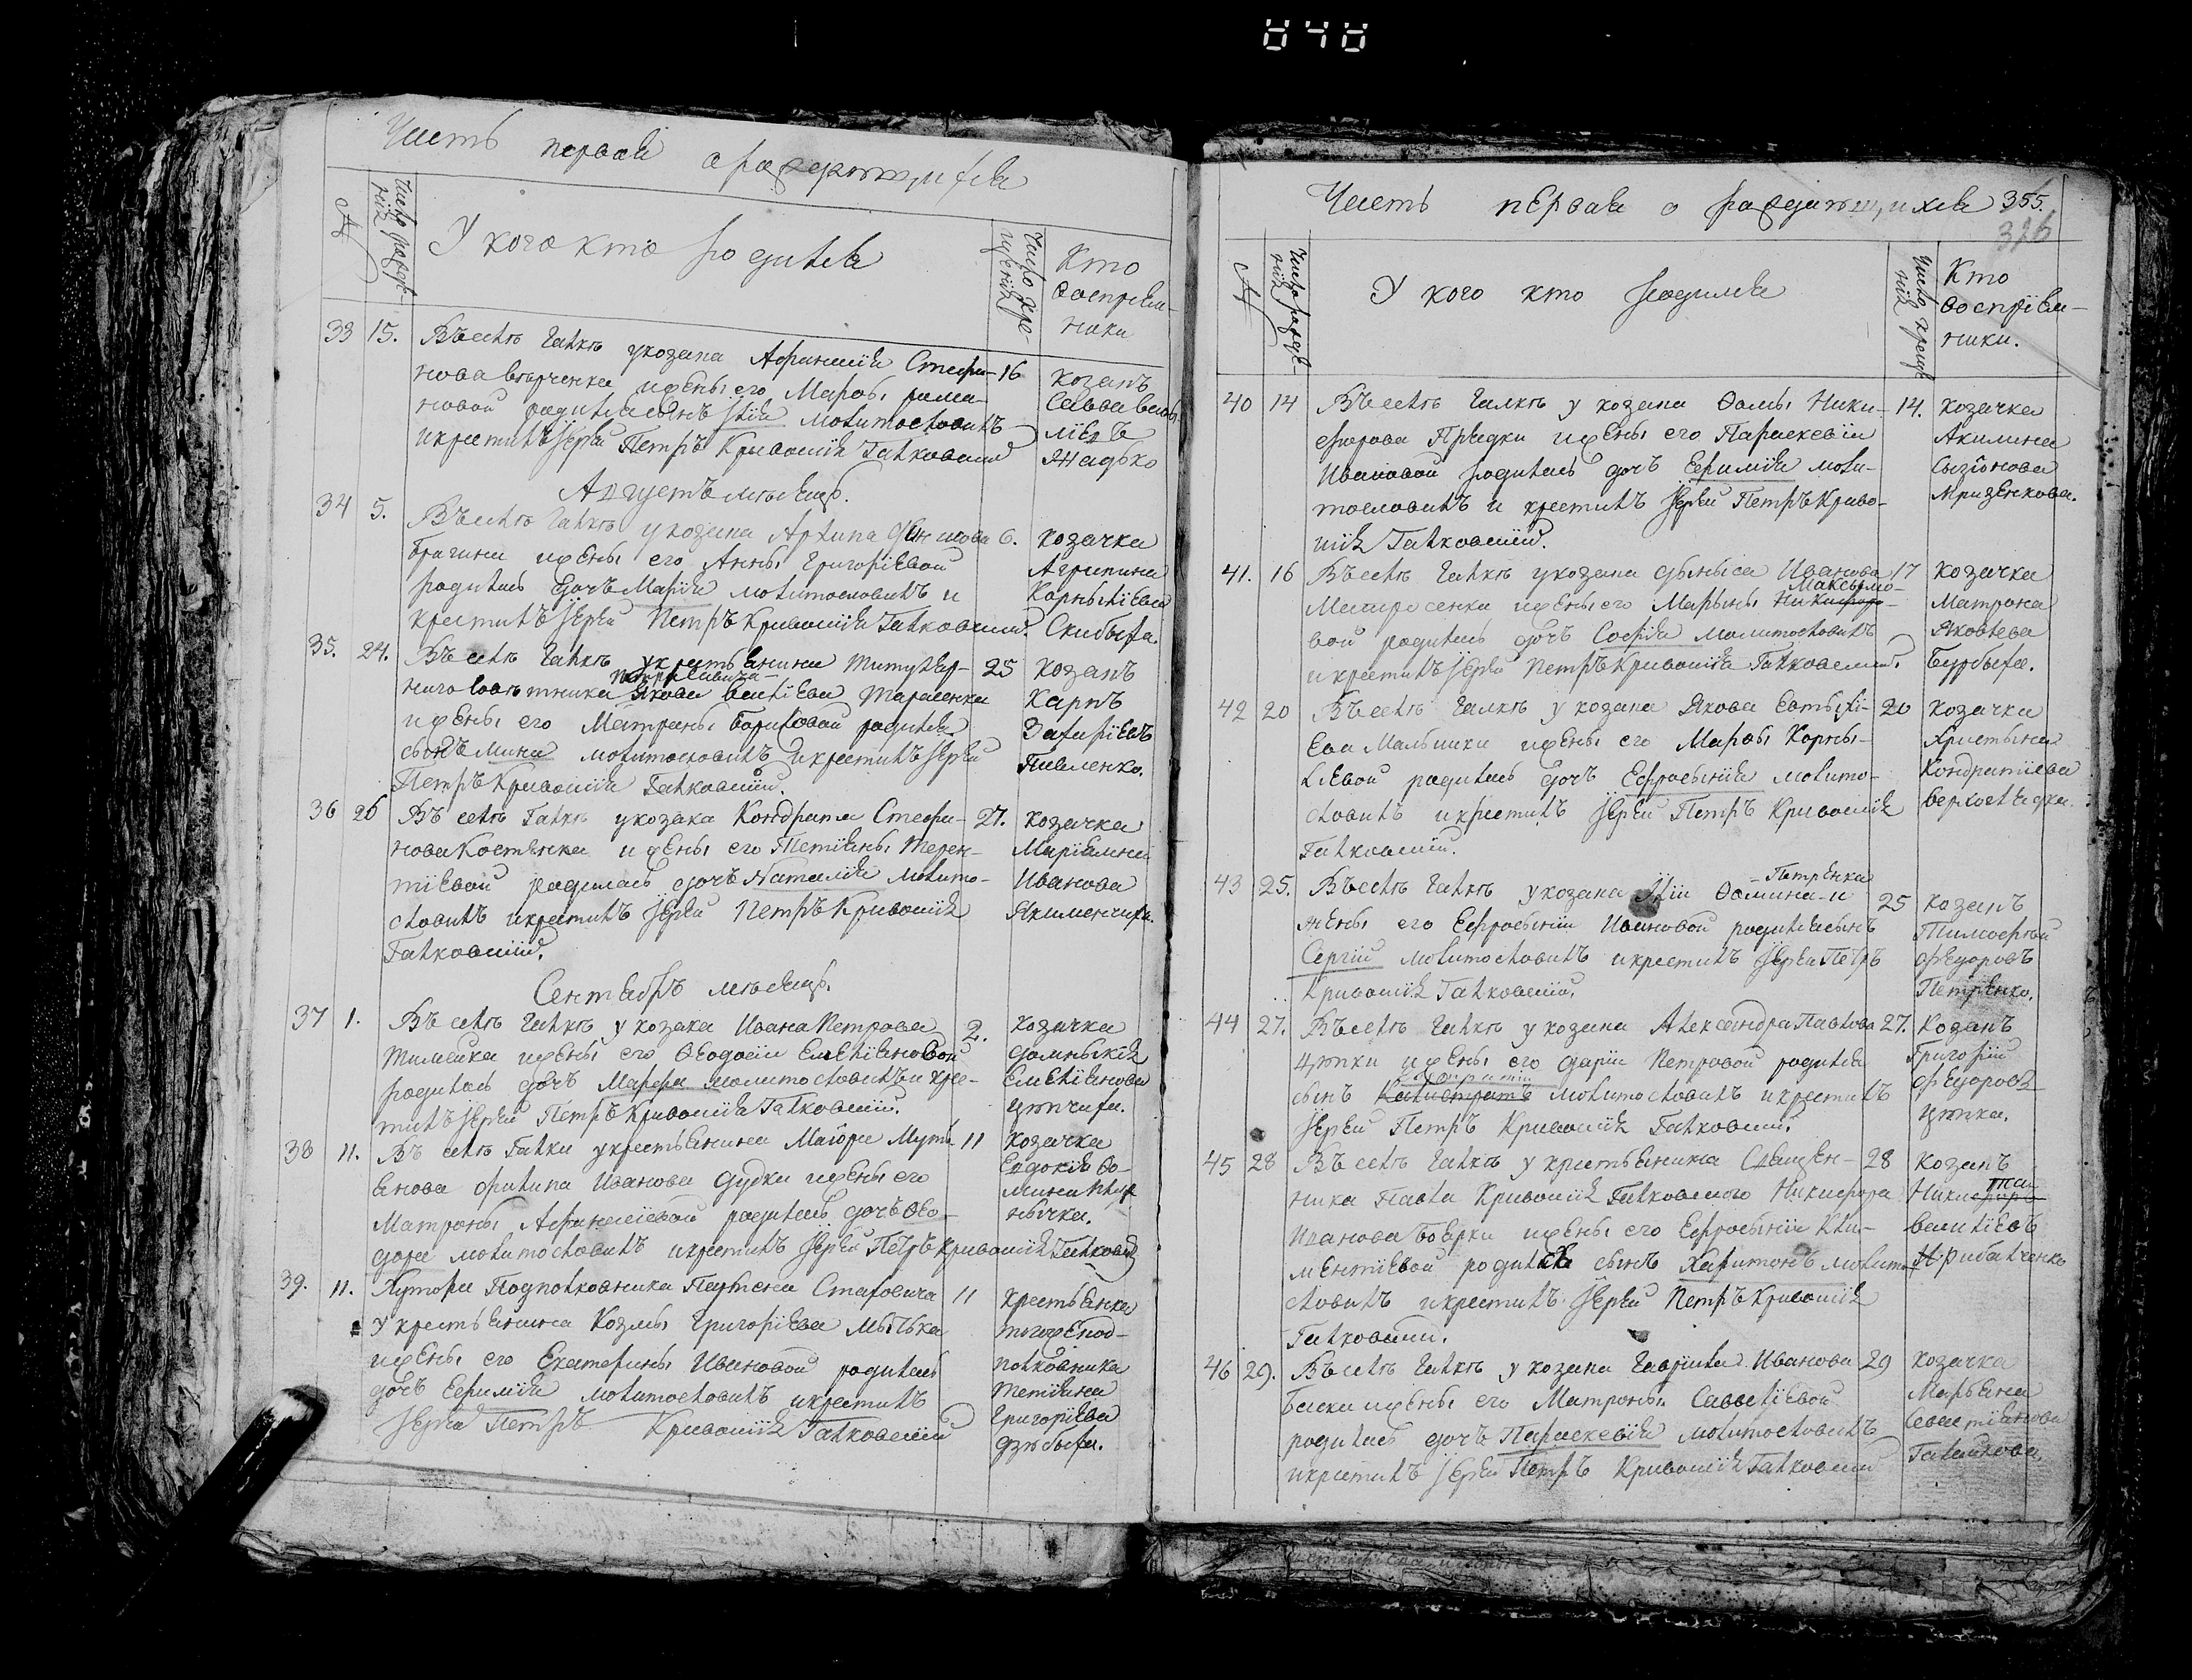 848
Часть первая о раждающихся
№
Число рожде-
нія
У кого кто родился
Число кре-
щенія
Кто
воспріем-
ники
33 15. Въ селѣ Галкѣ у козака Афанасія Стефа- 16
нова жены его Марѳы Рома-
новой родился сынъ Ілія молитвословилъ
и крестилъ Іерей Петръ Кривошія Галковскій
козакъ
Савва Васи-
ліевъ
Жадько
Августъ мѣсяцъ.
34 5. Въ селѣ Галкѣ у козака Архипа Денисова 6.
Брагина и жены его Анны Григоріевой
родилась дочь Марія молитвословилъ и
крестилъ Іерей Петръ Кривошія Галковскій.
козачка
Агрипина
Корнылѣева
Скибыха.
35. 24. Въ селѣ Галкѣ у крестьянина Титуляр- 25
наго Совѣтника Якова Василіева Тарасенка
и жены его Матроны Борисовой родился
сынъ Мина молитвословилъ и крестилъ Іерей
Петръ Кривошія Галковскій.
козакъ
Карпъ
Захаріевъ
Павленко.
36 26 Въ селѣ Галкѣ у козака Кондрата Стефа- 27.
нова Костенка и жены его Тетіяны Терен-
тіевой родилась дочь Наталія молитво-
словилъ и крестилъ Іерей Петръ Кривошія
Галковскій.
козачка
Маріамна
Иванова
Якименчиха.
Сентябръ мѣсяцъ.
37 1. Въ селѣ Галкѣ у козака Ивана Петрова 2.
и жены его Ѳеодосіи Емеліяновой
родилась дочь Марфа молитвословилъ и кре-
стилъ Іерей Петръ Кривошія Галковскій.
козачка
Домныкія
Емеліянова
38 11. Въ селѣ Галки у крестьянина Маіора Мутъ- 11
янова Филипа Иванова Дудки и жены его
Матроны Афанасіевой родилась дочь Ѳео-
дора молитвословилъ и крестилъ Іерей Петръ Кривошія Галковскій
козачка
Евдокія Ѳо-
мина
39. 11. Хутора Подполковника Парѳена Стаховича 11
У крестьянина Козмы Григоріева
и жены его Екатерины Ивановой родилась
дочь Евфимія молитвословилъ и крестилъ
Іерей Петръ Кривошія Галковскій
крестьянка
тогоже под-
полковника
Тетіяна
Григоріева
Дзюбыха.
Часть первая о раждающихся 355.
376
№
Число рожде-
нія
У кого кто родился
Число креще-
нія
Кто
воспріем-
ники.
40 14 Въ селѣ Галкѣ у козака Ѳомы Ники- 14.
форова Прядки и жены его Параскевіи
Ивановой родилась дочь Евфимія моли-
твословилъ и крестилъ Іерей Петръ Криво-
шія Галковскій.
козачка
Акилина
Сызонова
Мризенкова.
41. 16 Въ селѣ Галкѣ у козака Дыныса Иванова 17
Максымо-
и жены его Марыны Никифоро-
вой родилась дочь Софія молитвословилъ
и крестилъ Іерей Петръ Кривошія Галковскій.
козачка
Матрона
Яковлева
Бурбыха.
42 20 Въ селѣ Галкѣ у козака Якова Евтыхі- 20
ева Мальшки и жены его Марѳы Корны-
ліевой родилась дочь Ефросынія молитво-
словилъ и крестилъ Іерей Петръ Кривошія
Галковскій.
козачка
Христына
Кондратіева
43 25. Въ селѣ Галкѣ у козака Иліи Ѳомина Петренка и 25
жены его Ефросыніи Ивановой родился сынъ
Сергій молитвословилъ и крестилъ Іерей Петръ
Кривошія Галковскій.
козакъ
Тимофѣй
Федоровъ
Петренко.
44 27. Въ селѣ Галкѣ у козака Александра Павлова 27.
Цюпки и жены его Даріи Петровой родился
сынъ Калистратъ молитвословилъ и крестилъ
Іерей Петръ Кривошія Галковскій.
Козакъ
Григорій
Федоровъ
Цюпка.
45 28 Въ селѣ Галкѣ у крестьянина Священ- 28
ника Павла Кривошія Галковского Никифора
Иванова Боярки и жены его Ефросыніи Кли-
ментіевой родился сынъ Харитонъ молитво-
словилъ и крестилъ Іерей Петръ Кривошія
Галковскій.
Козакъ
Никита
Василіевъ
46 29. Въ селѣ Галкѣ у козака Гавріила Иванова 29
Баски и жены его Матроны Савеліевой
родилась дочь Параскевія молитвословилъ
и крестилъ Іерей Петръ Кривошія Галковскій
козачка
Марьяна
Севастіянова